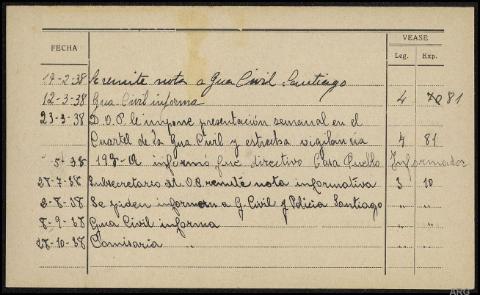 VEASE
FECHA Leg. Exp.
19-2-38 Se remite nota a Gua Civil Santiago
12-3-38 Gua. Civil informa 4 81
23-3-38 D.O.P. le impone presentación semanal en el
Cuartel de la Gua. Civil y estrecha vigilancia 4 81
-5-38 informó fue directivo Casa Pueblo Informador
28-7-38 Subsecretario del O.P. remite nota informativa 3 10
2-8-38 Se piden informes a G. Civil y Policia Santiago " "
8-9-38 Gua Civil informa " "
28-10-38 Comisaria " " "
ARG